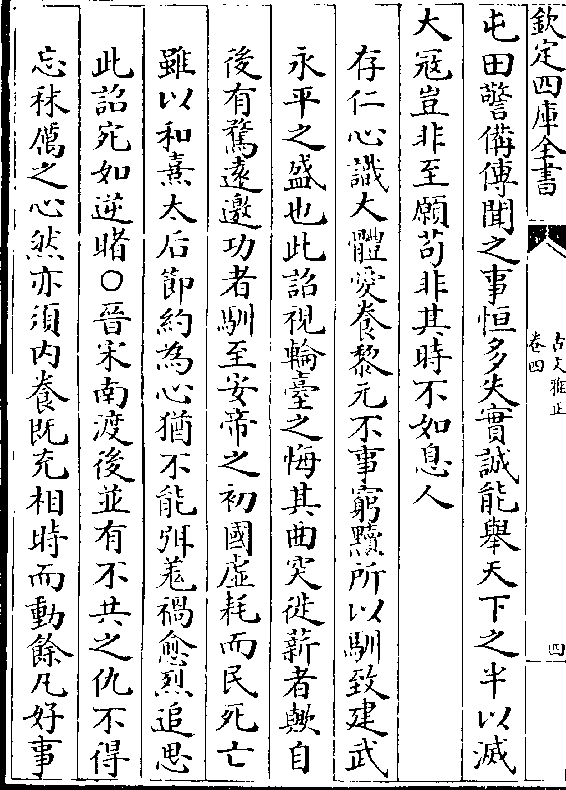 欽定四庫全書
古文雅正
卷四
四
屯田警備傳聞之事恒多失實誠能舉天下之半以滅
大寇豈非至願茍非其時不如息人
存仁心識大體愛養黎元不事窮黷所以馴致建武
永平之盛也此詔視輪臺之悔其曲突徙薪者歟自
後有騖遠邀功者馴至安帝之初國虛耗而民死亡
雖以和熹太后節約為心猶不能弭羗禍愈烈追思
此詔宛如逆睹○晉宋南渡後並有不共之仇不得
忘秣厲之心然亦須内養既充相時而動餘凡好事